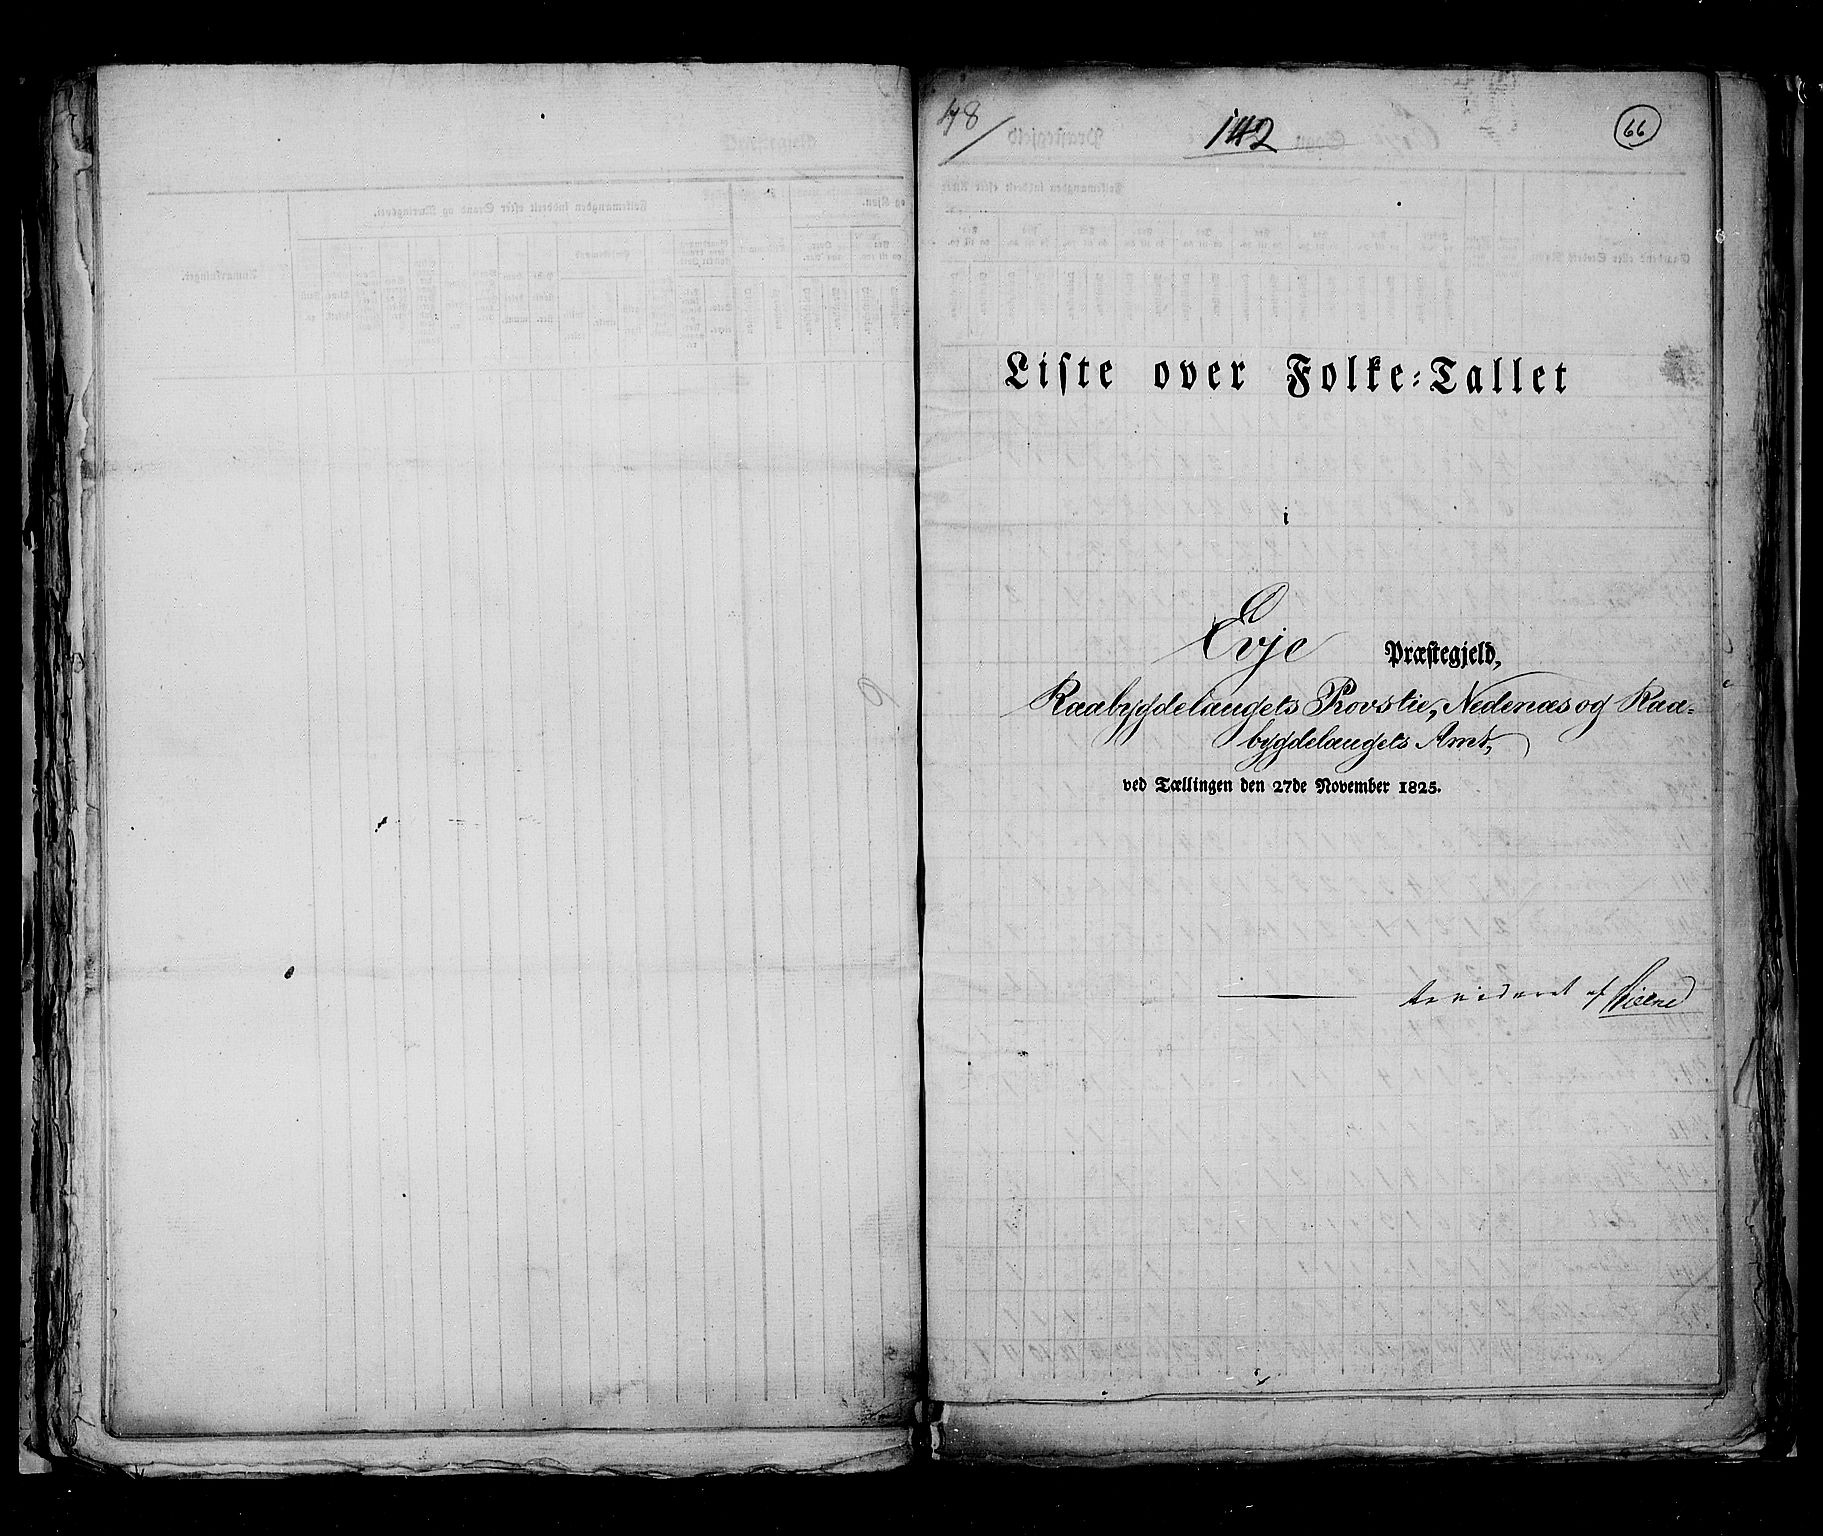 48
142
66
Liste over Folke-Tallet
i
Evje Præstegjeld,
Raabygdelaugets Provstie, Nedenæs og Raa-
bygdelaugets Amt,
ved Tællingen den 27de November 1825.
Revideret af